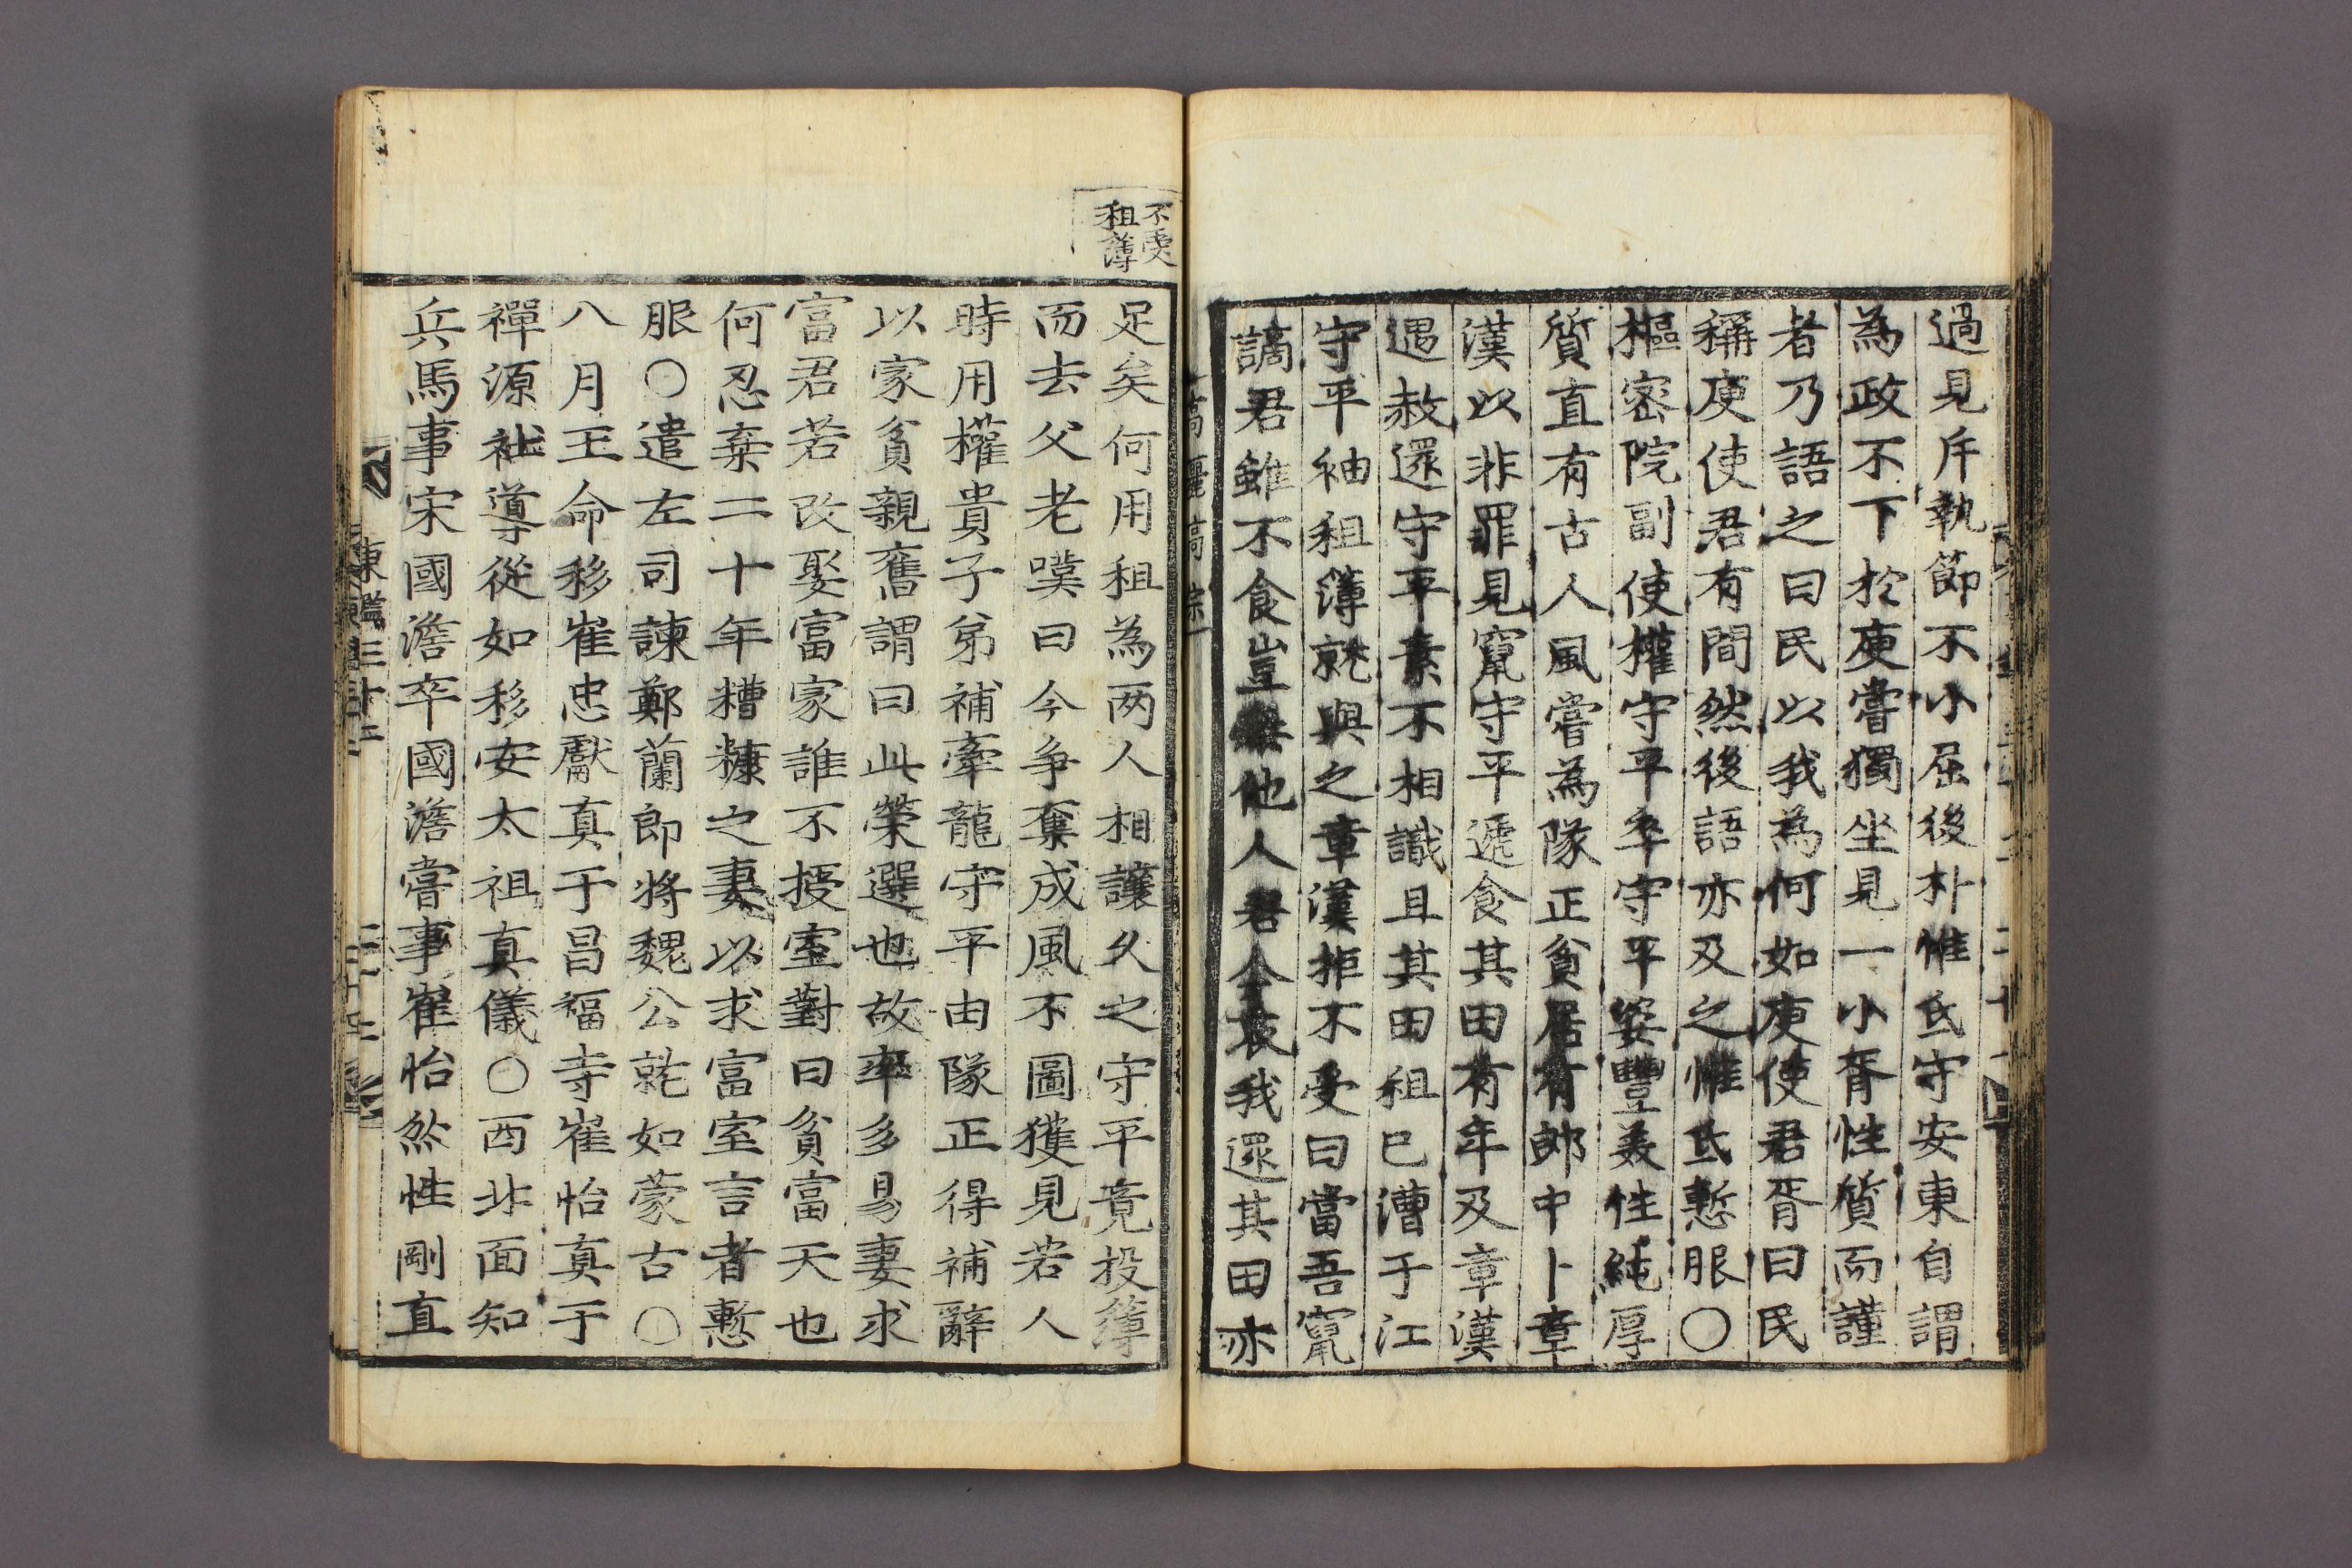 過見斥執節不小屈後朴惟氐守安東自謂
為政不下於庾嘗獨坐見一小胥性質而謹
者乃語之曰民以我為何如庾使君胥曰民
稱庾使君有間然後語亦及之惟氐慙服○
樞密院副使權守平卒守平姿豐美性純厚
質直有古人風嘗為隊正貧居有郎中卜章
漢以非罪見竄守平遞食其田有年及章漢
遇赦還守平素不相識且其田租已漕于江
守平袖租簿就與之章漢拒不受曰當吾竄
謫君雖不食豈無他人君今哀我還其田亦
高麗高宗一
不受
租簿
足矣何用租為两人相讓久之守平竟投簿
而去父老嘆曰今争奪成風不圖獲見若人
時用權貴子弟補牽龍守平由隊正得補辭
以家貧親舊謂曰此榮選也故率多易妻求
富君若改娶富家誰不授室對曰貧富天也
何忍棄二十年糟糠之妻以求富室言者慙
服○遣左司諫鄭蘭郎将魏公就如蒙古○
八月王命移崔忠獻真于昌福寺崔怡真于
禪源社導從如移安太祖真儀○西北面知
兵馬事宋國澹卒國澹嘗事崔怡然性剛直
東鑑三十二